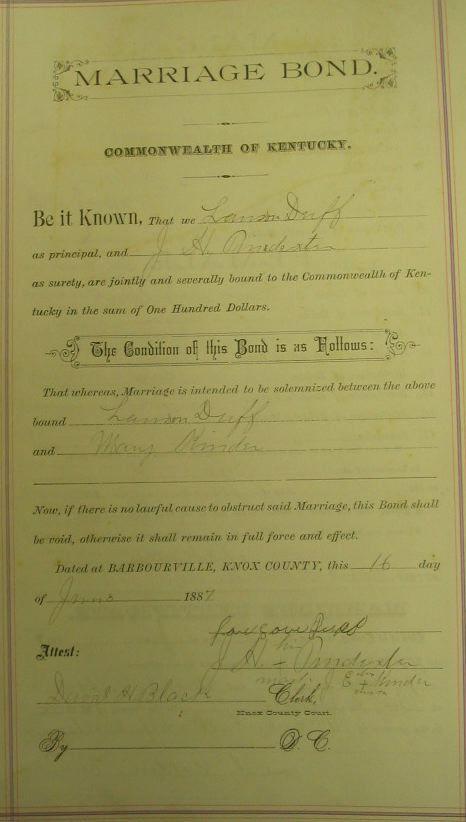 MARRIAGE BOND.
COMMONWEALTH OF KENTUCKY.
Be it Known, That we Lawson Duff
as principal, and J. H. Poindexter
as surety, are jointly and severally bound to the Commonwealth of Ken-
tucky in the sum of One Hundred Dollars.
The Condition of this Bond is as Follows:
That whereas, Marriage is intended to be solemnized between the above
bound Lawson Duff
and Mary
Now, if there is no lawful cause to obstruct said Marriage, this Bond shall
be void, otherwise it shall remain in full force and effect.
Dated at BARBOURVILLE, KNOX COUNTY, this 16 day
of 1887
Attest:
J H
David H Black Clerk,
Knox County Court.
By D. C.